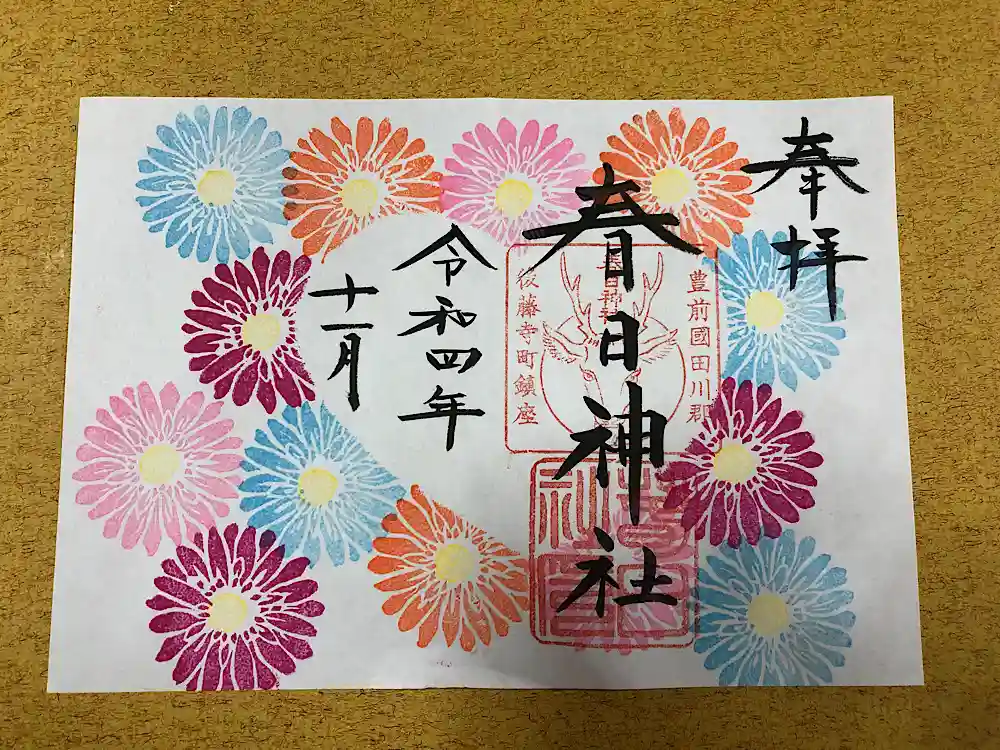 奉拝
豊前國田川郡
春日神社
春日神社
後藤寺町鎮座
令和四年
十一月